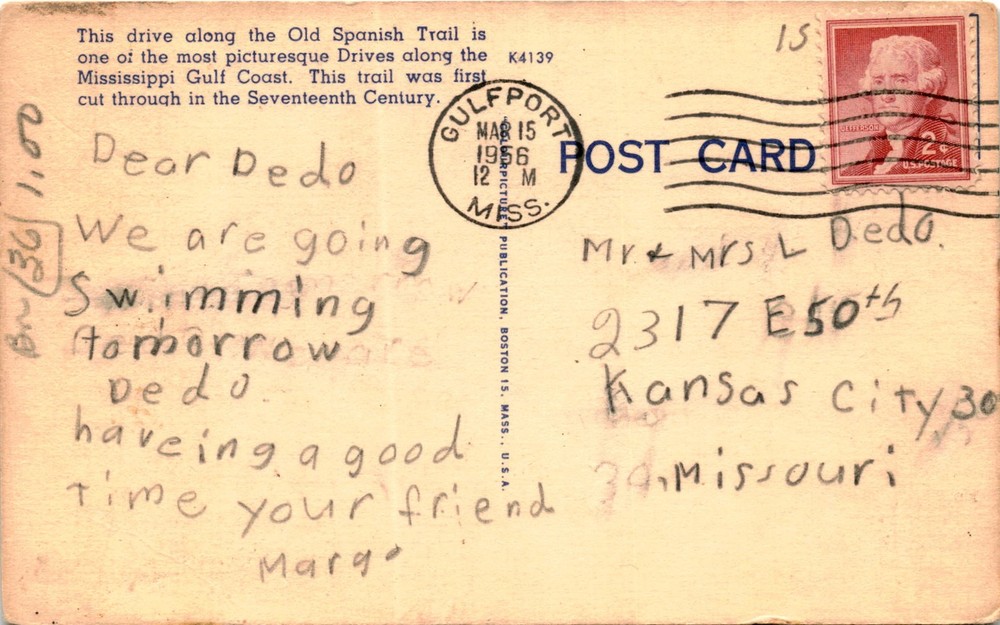 This drive along the Old Spanish Trail is
one of the most picturesque Drives along the
Mississippi Gulf Coast. This trail was first
cut through in the Seventeenth Century.
K4139
15
GULFPORT
MAR 15
1956
12 M
MISS.
POST CARD
JEFFERSON
2¢
U.S. POSTAGE
PUBLICATION, BOSTON 15, MASS., U.S.A.
36 1.00
Dear Dedo
We are going
Swimming
tomorrow
Dedo
haveing a good
time your friend
Margo
Mr & Mrs L Dedo.
2317 E 50th
Kansas City 30
Missouri